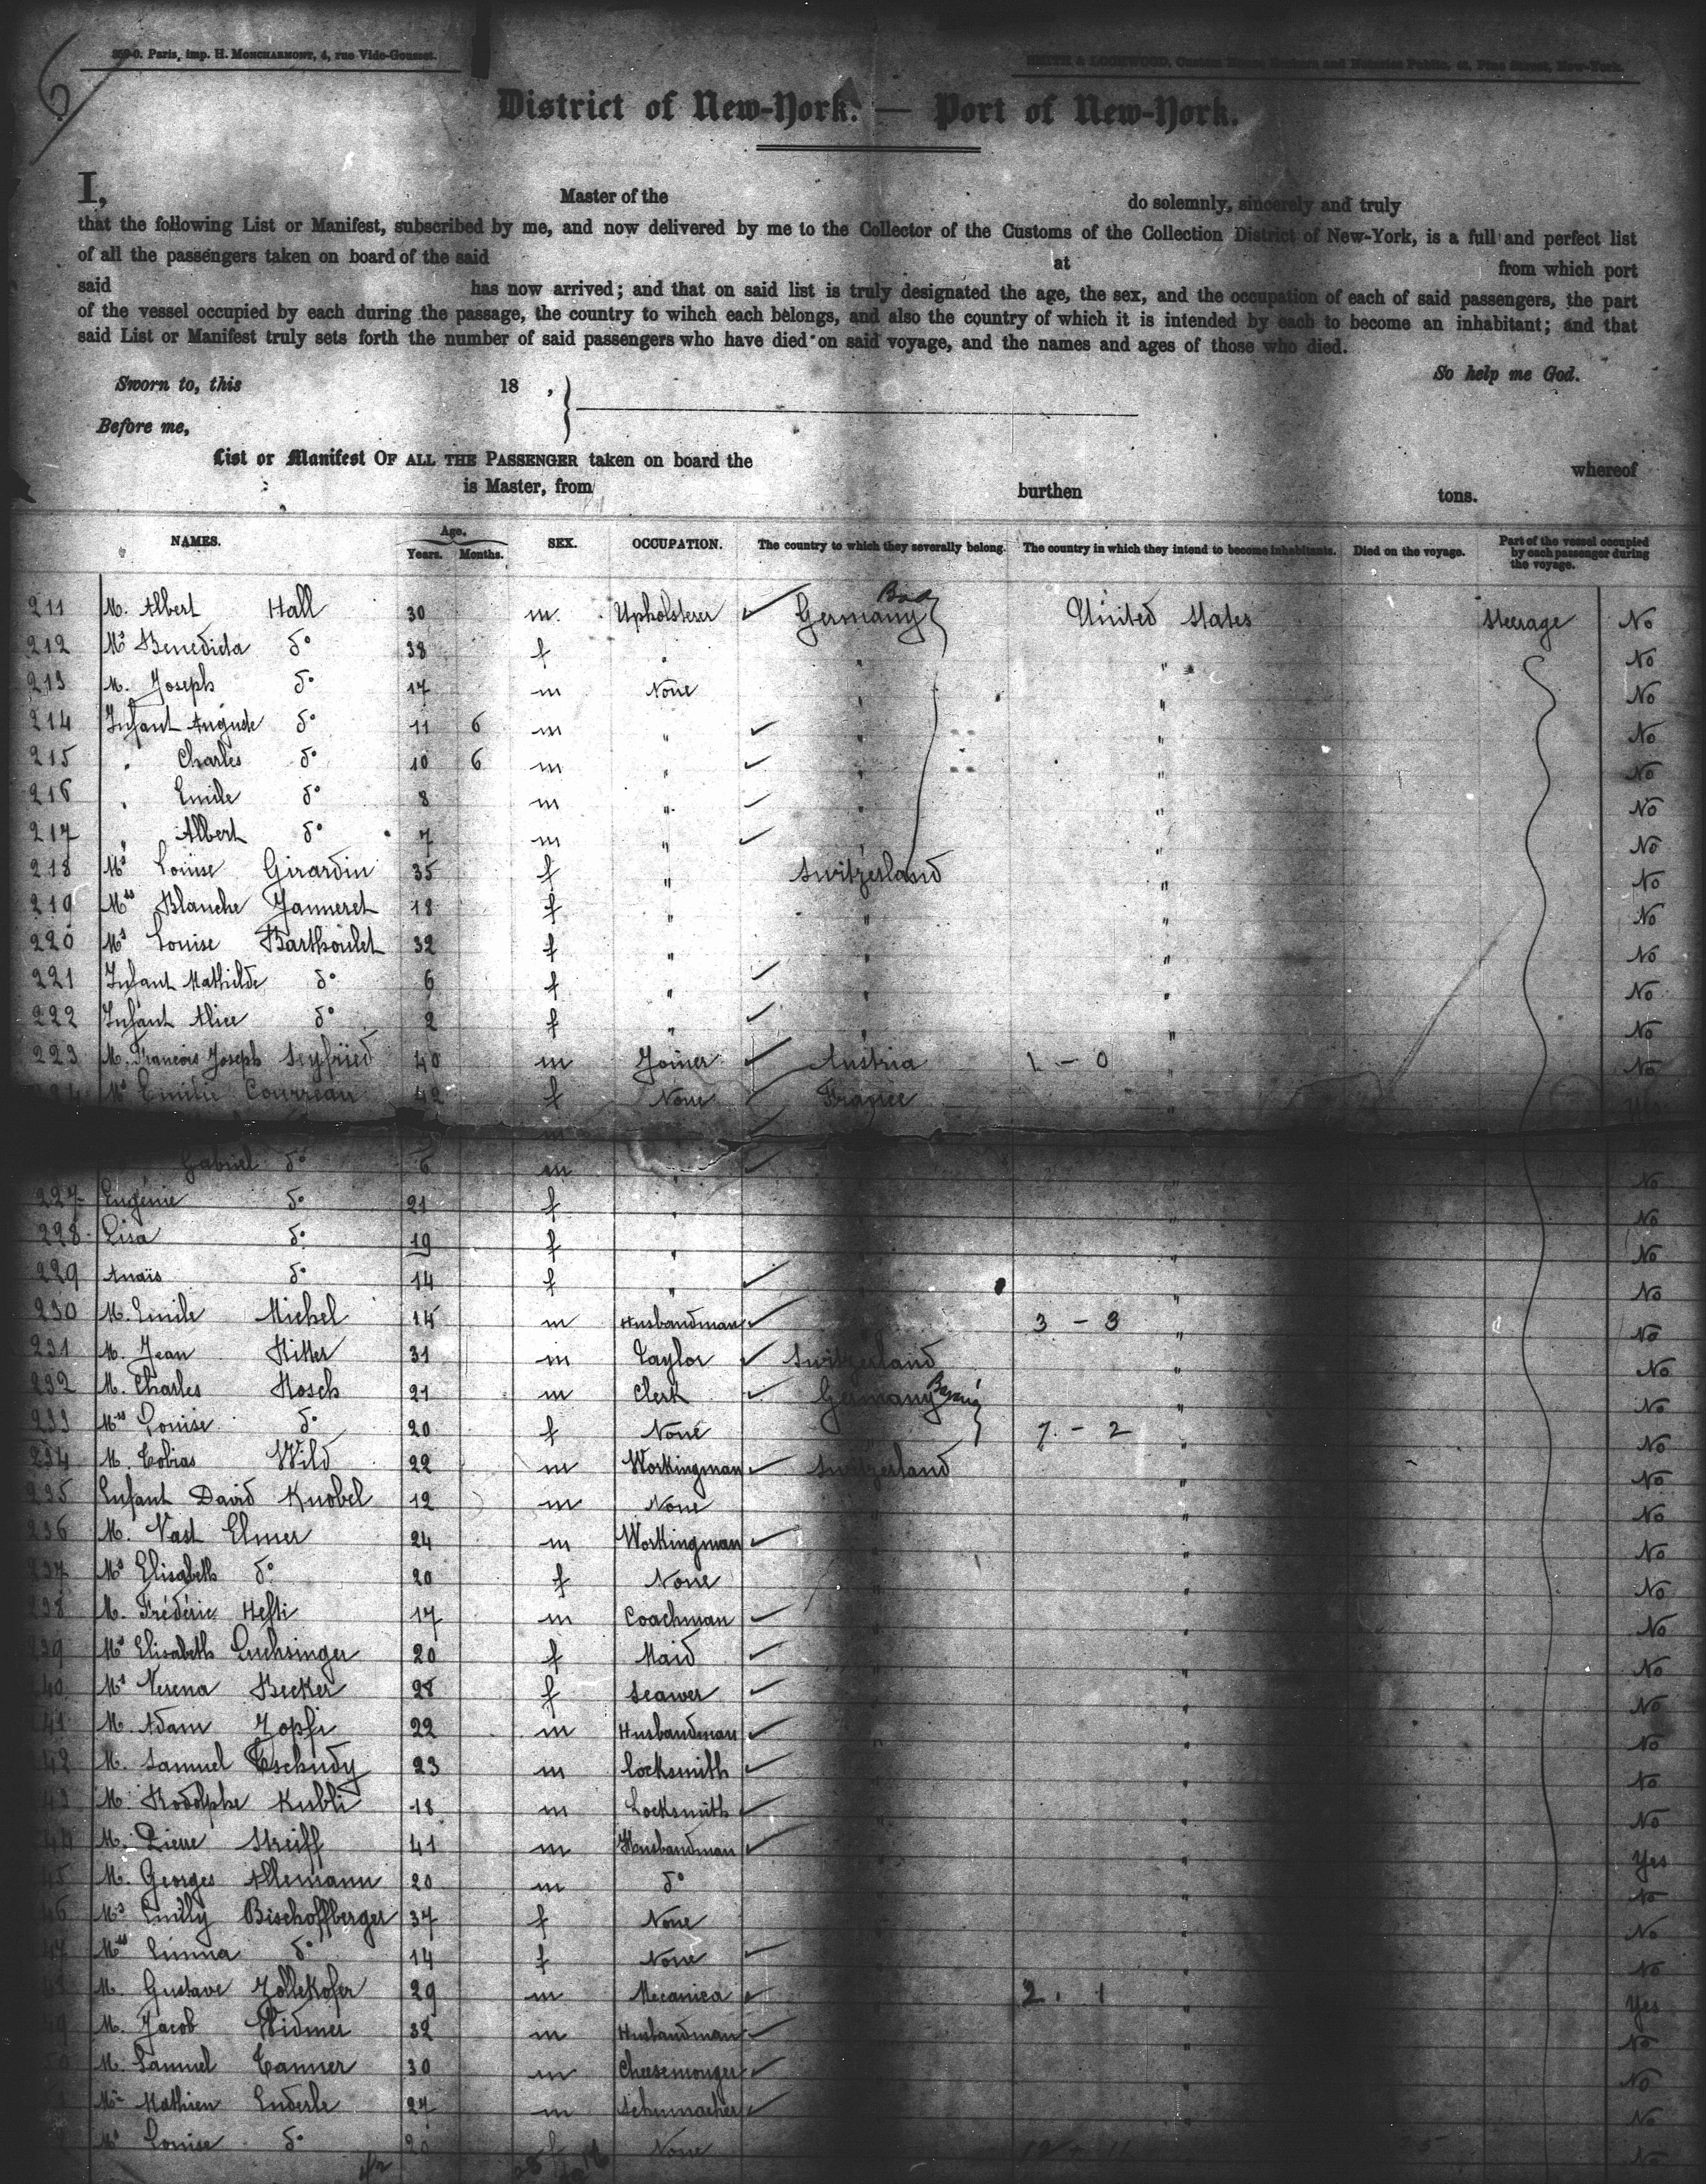 6
350-0. Paris, imp. H. MONCHARMONT, 4, rue Vide-Gousset.
SMITH & LOCKWOOD, Custom House Brokers and Notaries Public, Pine Street, New-York.
District of New-York. — Port of New-York.
I, Master of the do solemnly, sincerely and truly
that the following List or Manifest, subscribed by me, and now delivered by me to the Collector of the Customs of the Collection District of New-York, is a full and perfect list
of all the passengers taken on board of the said at from which port
said has now arrived; and that on said list is truly designated the age, the sex, and the occupation of each of said passengers, the part
of the vessel occupied by each during the passage, the country to wihch each belongs, and also the country of which it is intended by each to become an inhabitant; and that
said List or Manifest truly sets forth the number of said passengers who have died on said voyage, and the names and ages of those who died.
Sworn to, this 18 , So help me God.
Before me,
List or Manifest OF ALL THE PASSENGER taken on board the whereof
is Master, from burthen tons.
NAMES. Age. Years. Months. SEX. OCCUPATION. The country to which they severally belong. The country in which they intend to become inhabitants. Died on the voyage. Part of the vessel occupied by each passenger during the voyage.
211 M. Albert Hall 30 m. Upholsterer Germany United States Steerage No
212 Ms Benedicta do 38 f " " " No
213 M. Joseph do 17 m None " " No
214 Infant Auguste do 11 6 m " " " No
215 " Charles do 10 6 m " " " No
216 " Emile do 8 m " " " No
217 " Albert do 7 m " " " No
218 Ms Louise Girardin 35 f " Switzerland " No
219 Mss Blanche Janneret 18 f " " " No
220 Ms Louise Barthoulet 32 f " " " No
221 Infant Mathilde do 6 f " " " No
222 Infant Alice do 2 f " " " No
223 M. François Joseph Seyfried 40 m Joiner Austria 1 - 0 " No
Ms Emilie Courreau 42 f None France " Yes
m
Gabriel do 6 m " " No
227 Eugénie do 21 f " " No
228 Lisa do 19 f " " No
229 Anaïs do 14 f " " No
230 M. Emile Michel 15 m Husbandman 3 - 3 " No
231 M. Jean Ritter 31 m Taylor Switzerland " No
232 M. Charles Hosch 21 m Clerk Germany " No
233 Mss Louise do 20 f None 7 - 2 " No
234 M. Tobias Wild 22 m Workingman Switzerland " No
235 Enfant David Knobel 12 m None " No
236 M. Vast Elmer 24 m Workingman " " No
237 Ms Elisabeth do 20 f None " " No
238 M. Frédéric Hefti 17 m Coachman " " No
239 Ms Elisabeth Luchsinger 20 f Maid " " No
40 Ms Verena Becker 28 f Seawer " " No
41 M. Adam Zopfi 22 m Husbandman " " No
42 M. Samuel Tschudy 23 m Locksmith " " No
43 M. Rodolphe Kubli 18 m Locksmith " " No
44 M. Pierre Streiff 41 m Husbandman " " Yes
45 M. Georges Allemann 20 m do " " No
46 Ms Emily Bischoffberger 37 f None " " No
47 Mss Emma do 14 f None " " No
48 M. Gustave Zollikofer 29 m Mecanica 2. 1 " Yes
49 M. Jacob Widmer 32 m Husbandman " No
50 M. Samuel Tanner 30 m Cheesemonger " No
M. Mathieu Enderle 27 m Schumacher " No
Ms Louise do 20 f None No